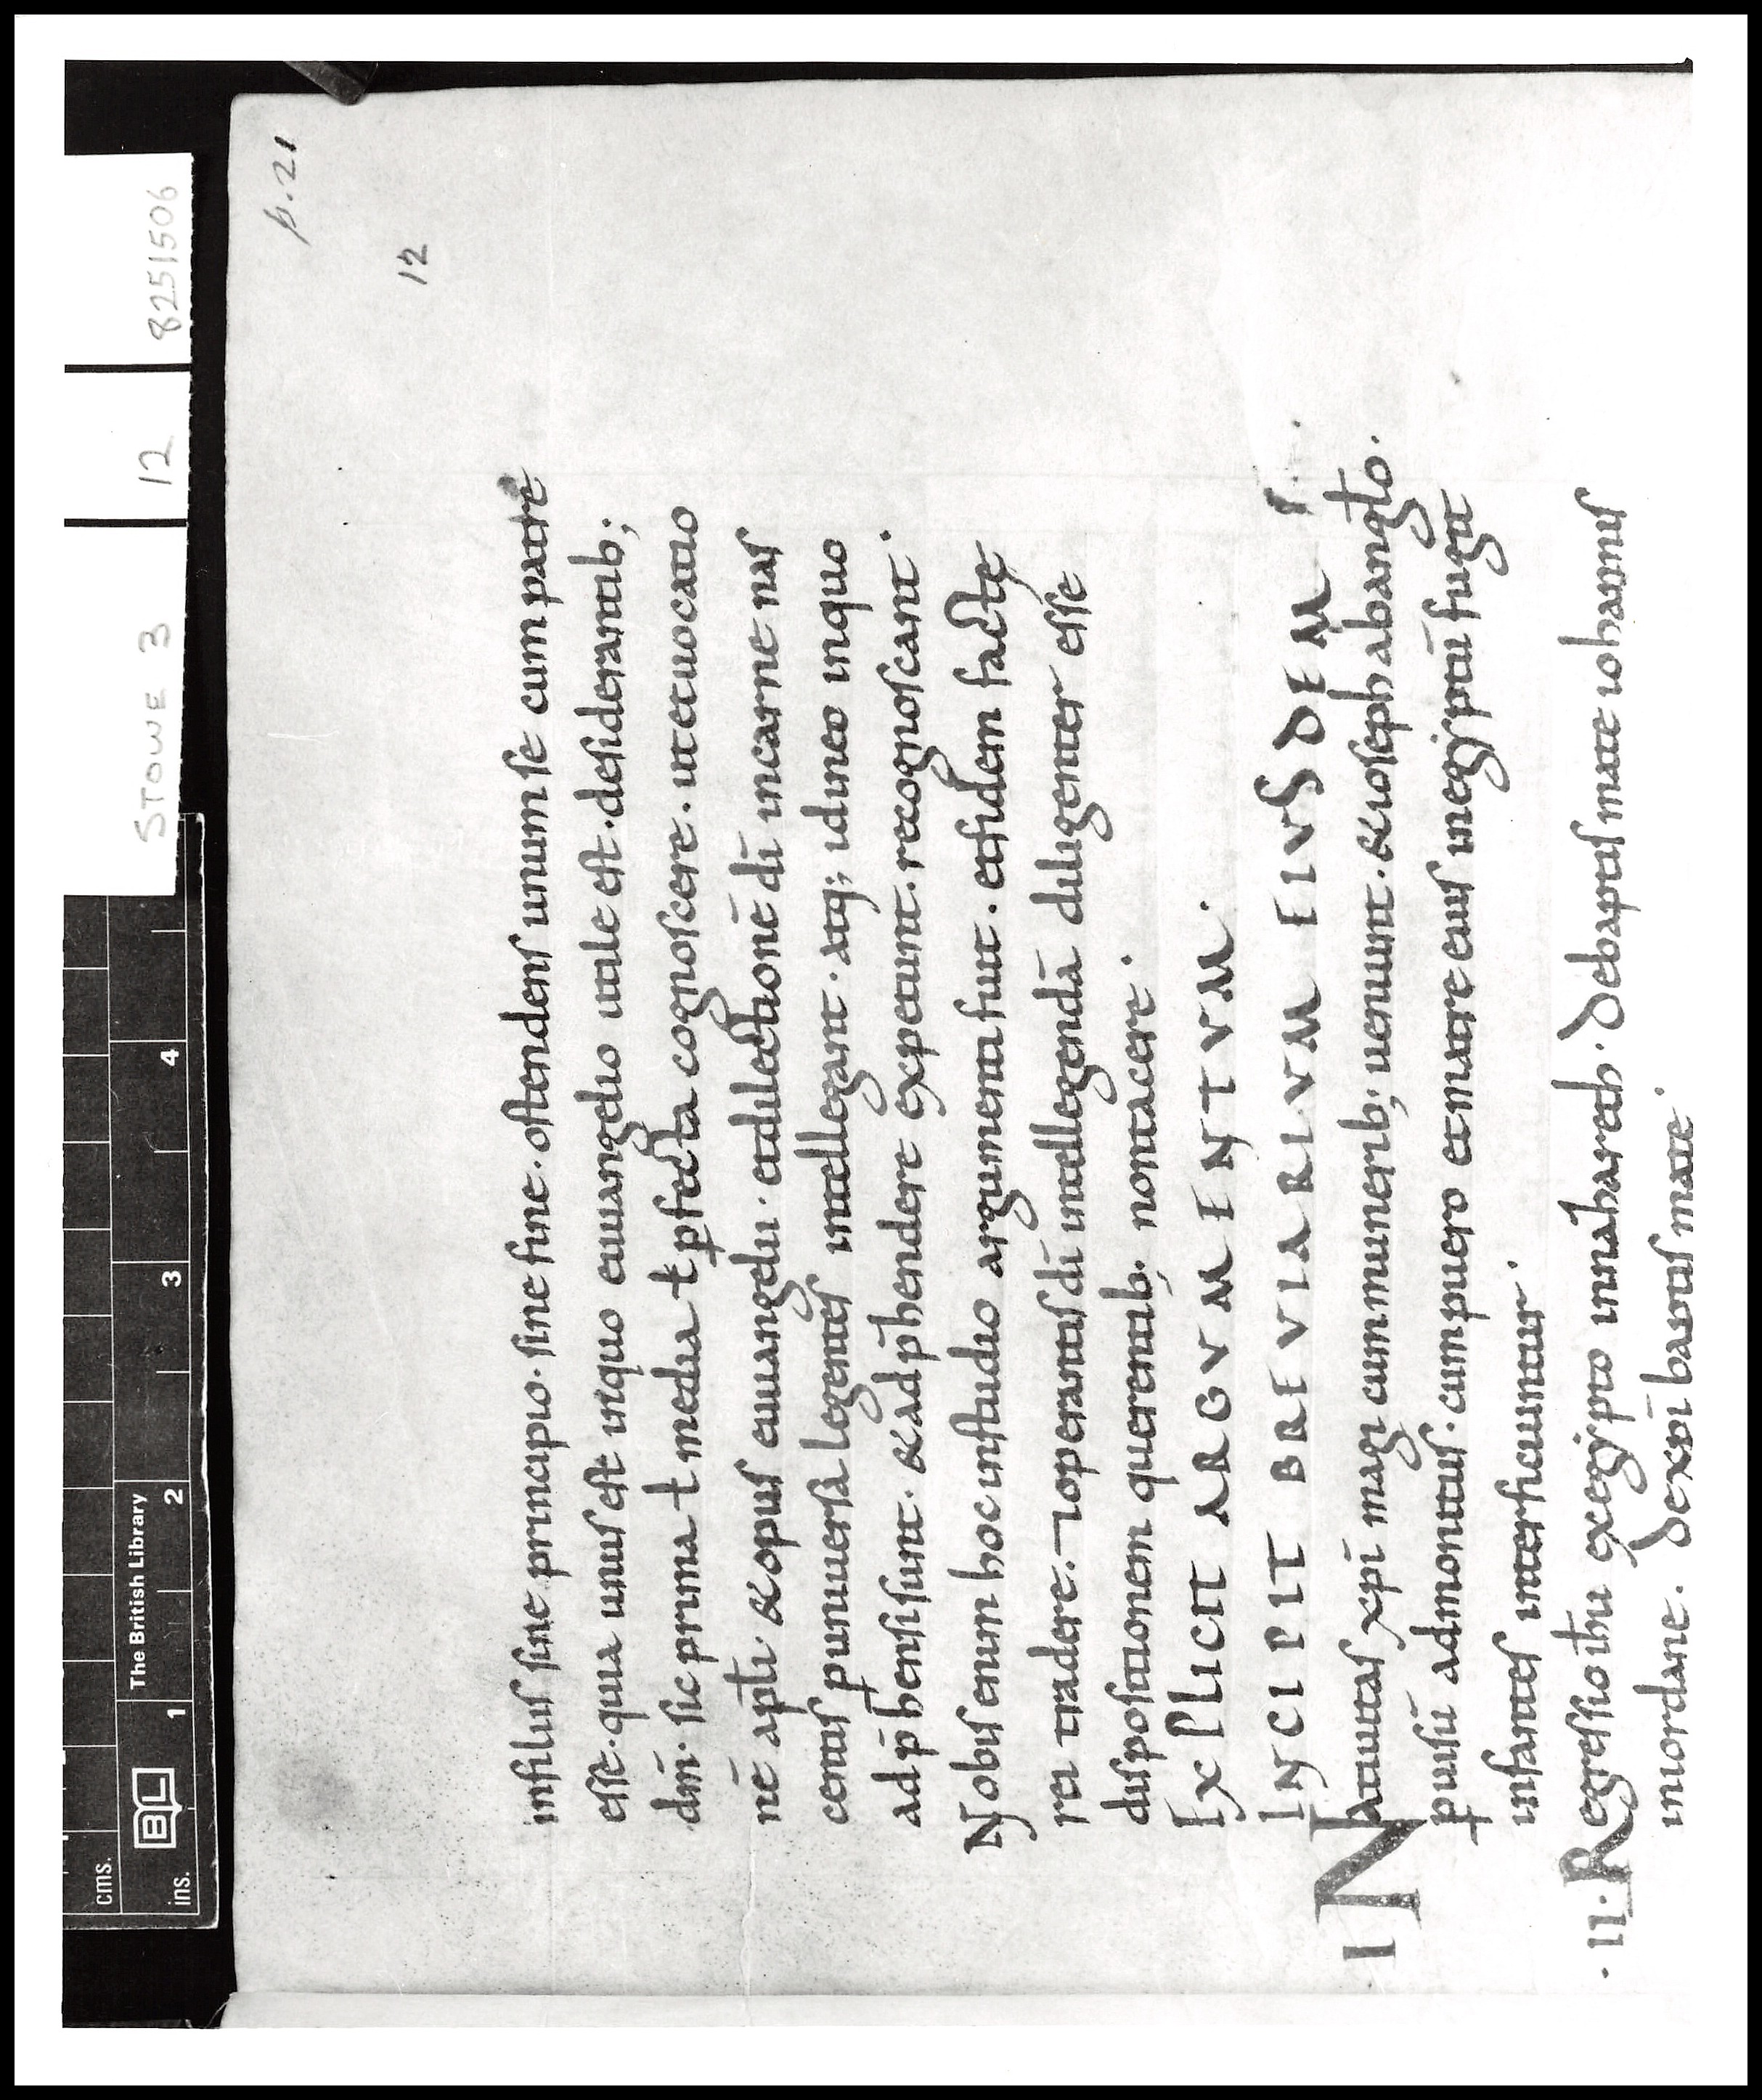 STOWE 3 12 8251506
The British Library
cms.
ins. 1 2 3 4
BL
p. 21
12
infiliuſ ſine principio. ſine fine. oſtendenſ unum ſe cum patre
eſſe. quia unuſ eſt inquo euuangelio utile eſt. deſiderantib;
dm̄. ſic prima ł media ł ꝑfecta cognoſcere. ut etuocatio
nē apłi & opuſ euuangelii. etdilectionē dī incarne naſ
centiſ ꝑuniuerſa legenteſ intellegant. atq; idineo inquo
adp̄henſi ſunt. & adp̄hendere expetunt. recognoſcant.
Nobiſ enim hoc inſtudio argumenti fuit. etfidem factę
rei tradere. ⁊ operantiſ dī intellegendā diligenter eſſe
diſpoſitionem querentib; nontacere.
EXPLICIT ARGVMENTVM.
INCIPIT BREVIARIVM EIVSDEM
I Natiuitaſ xp̄i magi cummunerib; uenunt. & ioſeph abangło.
ꝑuiſū admonituſ. cumpuero etmatre eiuſ inegÿptū fugit
infanteſ interficiuntur.
.II. Regreſſio ihu exegÿpto innazareth. Debaptiſmate iohanniſ
iniordane. Dexp̄i baptiſmate.